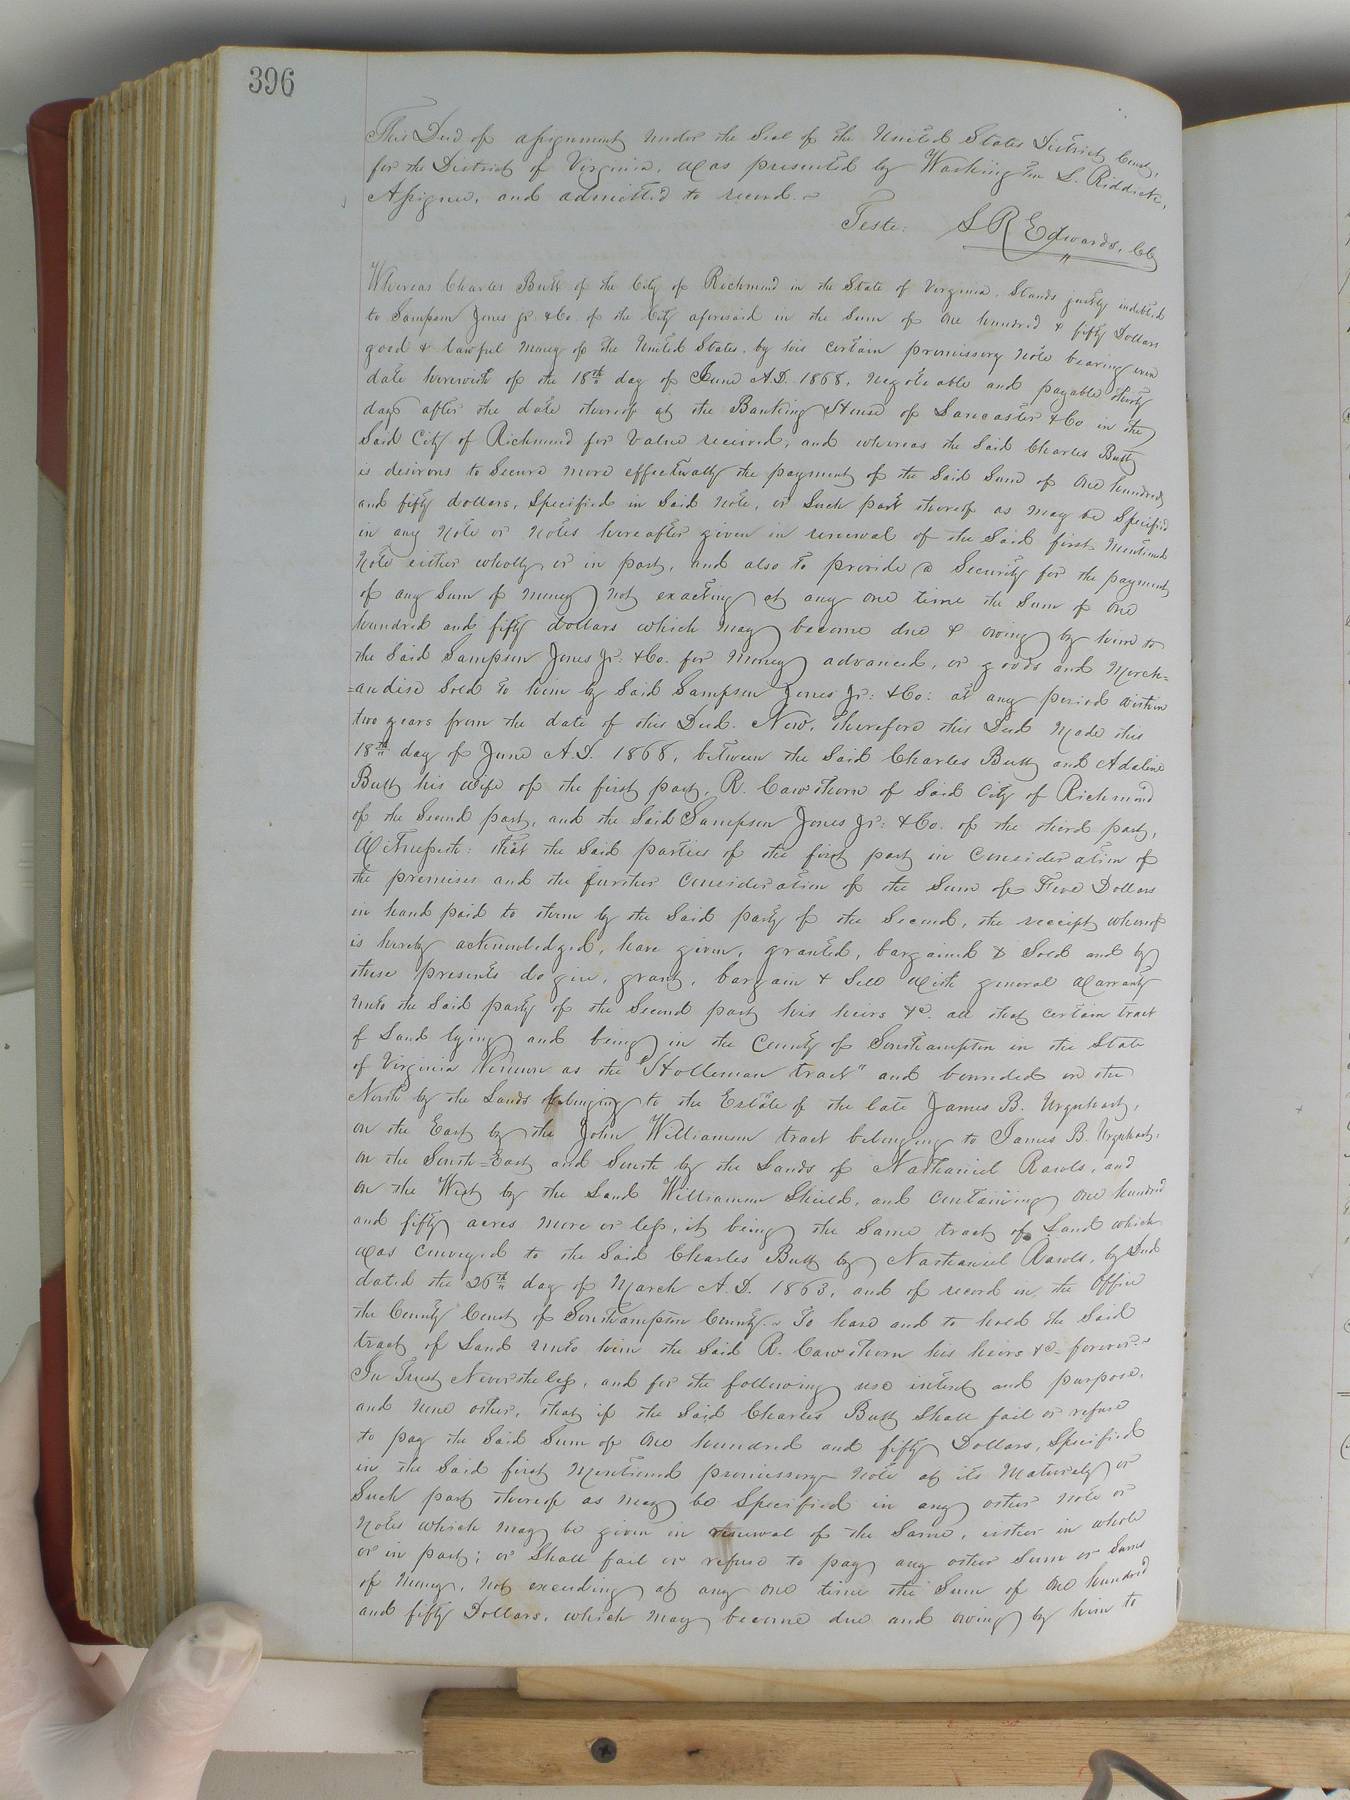 396
This Deed of assignment under the Seal of the United States District Court,
for the District of Virginia, was presented by Washington L. Riddick,
Assignee, and admitted to record.
Teste: L R Edwards, Clk
Whereas Charles Butt of the City of Richmond in the State of Virginia, Stands justly indebted
to Sampson Jones Jr. & Co. of the City aforesaid in the Sum of One hundred & fifty Dollars
good & lawful Money of the United States, by his certain promissory Note bearing even
date herewith of the 18th day of June A.D. 1868, Negotiable and payable thirty
days after the date thereof at the Banking House of Lancaster & Co in the
Said City of Richmond for Value received, and whereas the Said Charles Butt
is desirous to Secure more effectually the payment of the Said Sum of One hundred
and fifty dollars, Specified in Said Note, or Such part thereof as may be Specified
in any Note or Notes hereafter given in renewal of the Said first Mentioned
Note either wholly or in part, and also to provide a Security for the payment
of any Sum of Money not exacting at any one time the Sum of One
hundred and fifty dollars which may become due & owing by him to
the Said Sampson Jones Jr: & Co. for Money advanced, or goods and Merch=
=andise Sold to him by Said Sampson Jones Jr: & Co: at any period within
two years from the date of this Deed. Now, therefore this Deed Made this
18th day of June A.D. 1868, between the Said Charles Butt and Adaline
Butt his Wife of the first part, R. Cawthorn of Said City of Richmond
of the Second part, and the Said Sampson Jones Jr: & Co. of the third part,
Witnesseth: that the Said parties of the first part in Consideration of
the premises and the further Consideration of the Sum of Five Dollars
in hand paid to them by the Said party of the Second, the receipt whereof
is hereby acknowledged, have given, granted, bargained & Sold and by
these presents do give, grant, bargain & Sell with general Warranty
Unto the Said party of the Second part his heirs &c. all that certain tract
of Land lying and being in the County of Southampton in the State
of Virginia Known as the "Holleman tract" and bounded on the
North by the Lands belonging to the Estate of the late James B. Urquhart,
on the East by the John Williamson tract belonging to James B. Urquhart,
on the South=East and South by the Lands of Nathaniel Rawls, and
on the West by the Land Williamson Shield, and containing one hundred
and fifty acres more or less, it being the Same tract of Land which
was conveyed to the Said Charles Butt by Nathaniel Rawls, by Deed
dated the 26th day of March A.D. 1863, and of record in the Office
the County Court of Southampton County. To have and to hold the Said
tract of Land Unto him the Said R. Cawthorn his heirs &c forever.
In Trust Nevertheless, and for the following use intent and purpose,
and none other, that if the Said Charles Butt Shall fail or refuse
to pay the Said Sum of One hundred and fifty Dollars, Specified
in the Said first Mentioned promissory Note at its Maturity or
Such part thereof as may be Specified in any other Note or
Notes which may be given in renewal of the Same, either in whole
or in part; or Shall fail or refuse to pay any other Sum or Sums
of Money, not exceeding at any one time the Sum of One hundred
and fifty Dollars, which may become due and owing by him to